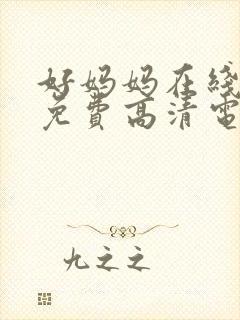 好妈妈在线
免费高清电
九之之